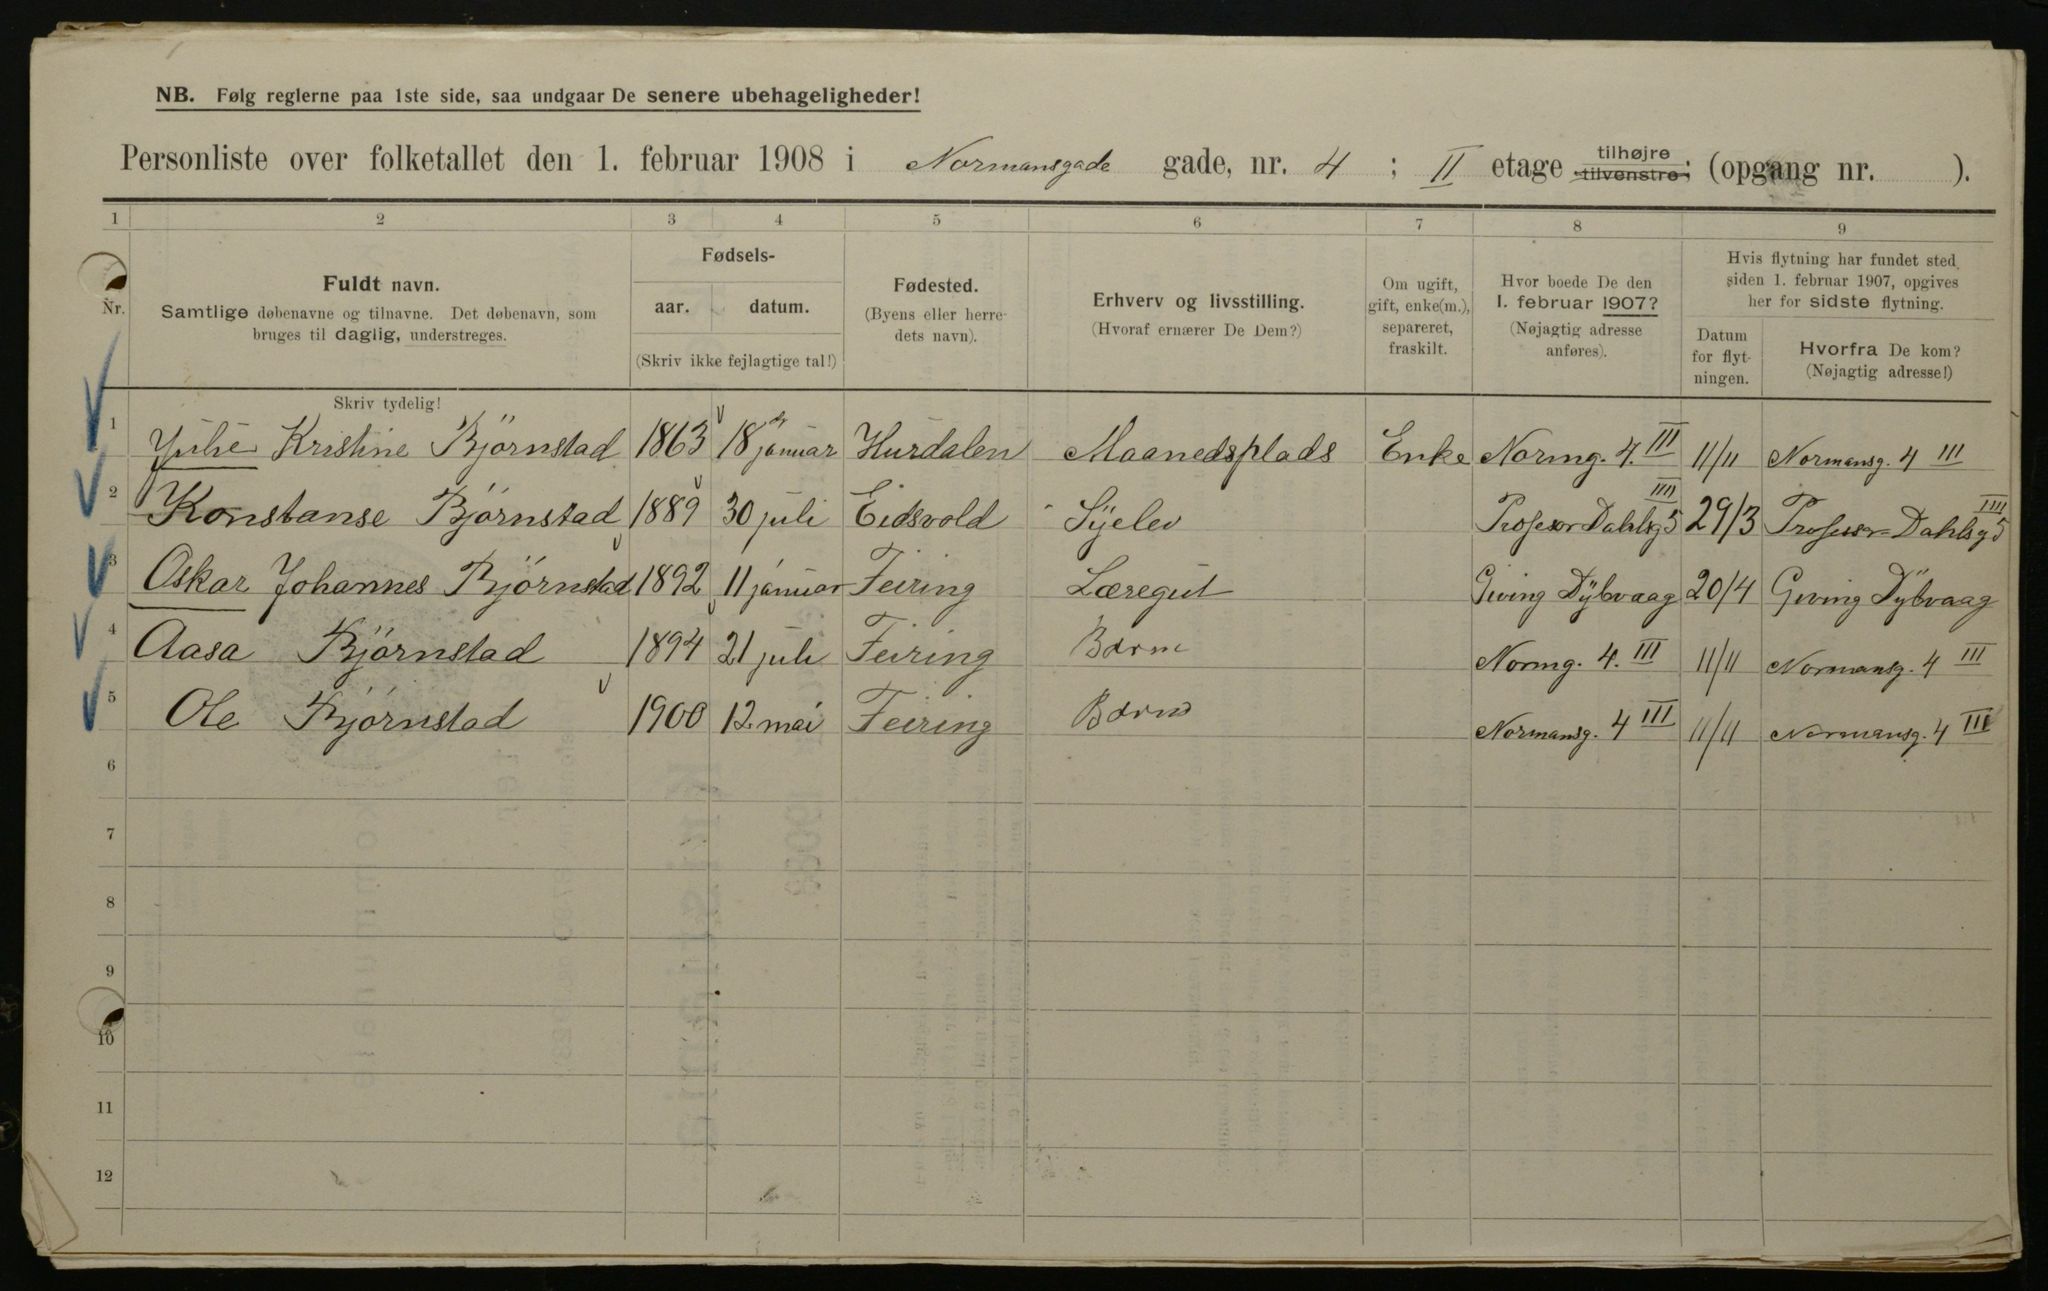 NB. Følg reglerne paa 1ste side, saa undgaar De senere ubehageligheder!
Personliste over folketallet den 1. februar 1908 i Normansgade gade, nr. 4 ; II etage tilhøjre tilvenstre; (opgang nr. ).
1 2 3 4 5 6 7 8 9
Nr.
Fuldt navn.
Samtlige døbenavne og tilnavne. Det døbenavn, som
bruges til daglig, understreges.
Fødsels-
aar. datum.
(Skriv ikke fejlagtige tal!)
Fødested.
(Byens eller herre-
dets navn).
Erhverv og livsstilling.
(Hvoraf ernærer De Dem?)
Om ugift,
gift, enke(m.),
separeret,
fraskilt.
Hvor boede De den
1. februar 1907?
(Nøjagtig adresse
anføres).
Hvis flytning har fundet sted
siden 1. februar 1907, opgives
her for sidste flytning.
Datum
for flyt-
ningen.
Hvorfra De kom?
(Nøjagtig adresse!)
Skriv tydelig!
1 Julie Kristine Bjørnstad 1863 18 januar Hurdalen Maanedsplads Enke Normg. 4. III 11/11 Normansg. 4 III
2 Konstanse Bjørnstad 1889 30 juli Eidsvold Syelev Profesor Dahlsg 5 IIII 29/3 Professor Dahlsg 5 IIII
3 Oskar Johannes Bjørnstad 1892 11 januar Feiring Læregut Giving Dybvaag 20/4 Giving Dybvaag
4 Aasa Bjørnstad 1894 21 juli Feiring Barn Normg. 4. III 11/11 Normansg. 4 III
5 Ole Bjørnstad 1900 12 mai Feiring Barn Normansg. 4 III 11/11 Normansg. 4 III
6
7
8
9
10
11
12